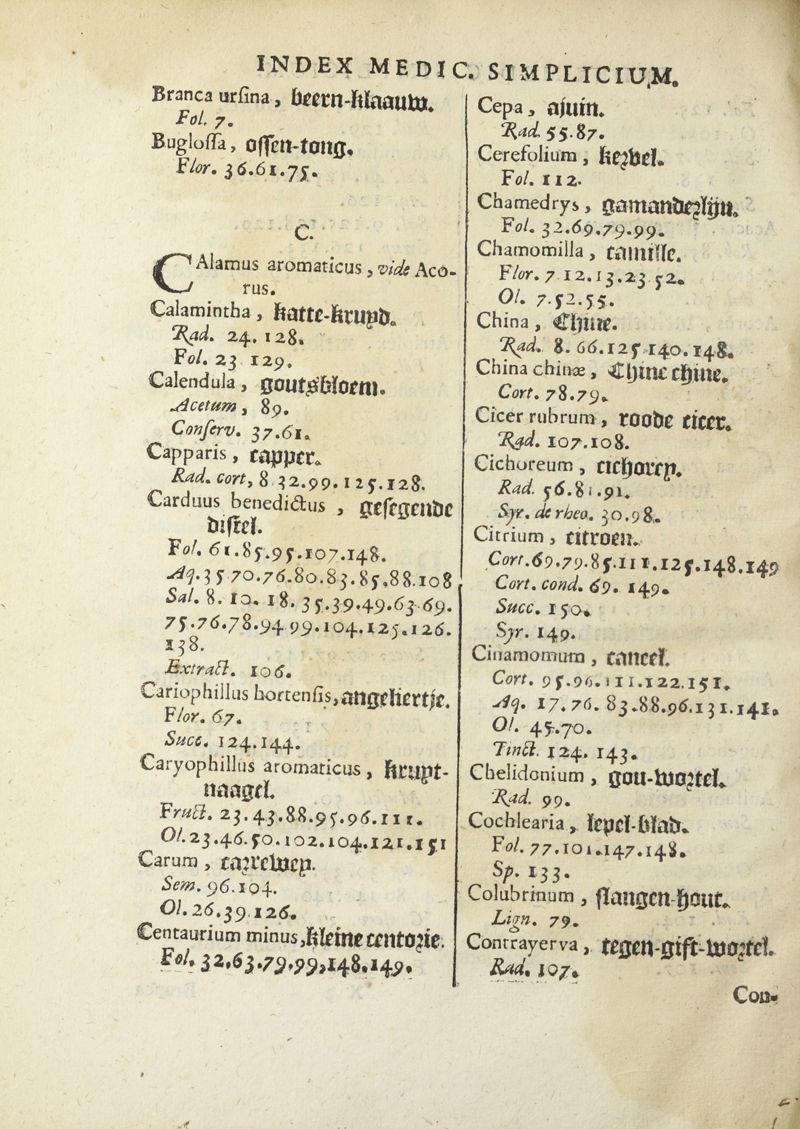 INDEX MEDIC. SIMPLICIUM.
Branca ursina, beern-klaauw.
Fol. 7.
Buglossa, ossen-tong.
Flor. 36.61.75.
C.
CAlamus aromaticus, vide Aco-
rus.
Calamintha, katte-kruyd.
Rad. 24. 128.
Fol. 23 129.
Calendula, gouts-bloem.
Acetum, 89.
Conserv. 37.61.
Capparis, capper.
Rad. cort, 8 32.99.125.128.
Carduus benedictus, gesegende
distel.
Fol. 61.85.95.107.148.
Aq.35 70.76.80.83.85.88.108
Sal. 8. 10. 18. 35.39.49.63.69.
75.76.78.94 99.104.125.126.
138.
Extract. 106.
Cariophillus hortensis, angeliertje.
Flor. 67.
Succ. 124.144.
Caryophillus aromaticus, kruypt-
naagel.
Fruct. 23.43.88.95.96.111.
Ol.23.46.50.102.104.121.151
Carum, carrewey.
Sem. 96.104.
Ol.26.39.126.
Centaurium minus, kleine centorie.
Fol. 32.63.79.99,148.149.
Cepa, ajuin.
Rad. 55.87.
Cerefolium, kervel.
Fol. 112.
Chamedrys, gamanderlijn.
Fol. 32.69.79.99.
Chamomilla, camille.
Flor. 7 12.13.23 52.
Ol. 7.52.55.
China, Chine.
Rad. 8. 66.125 140.148.
China chinæ, Chine chine.
Cort. 78.79.
Cicer rubrum, roode cicer.
Rad. 107.108.
Cichoreum, cichorey.
Rad. 56.81.91.
Syr. de rheo. 30.98.
Citrium, citroen.
Cort.69.79.85.111.125.148.149
Cort. cond. 69. 149.
Succ. 150.
Syr. 149.
Cinamomum, caneel.
Cort. 95.96.111.122.151.
Aq. 17.76. 83.88.96.131.141.
Ol. 45.70.
Tinct. 124. 143.
Chelidonium, gou-wortel.
Rad. 99.
Cochlearia, lepel-blad.
Fol. 77.101.147.148.
Sp. 133.
Colubrinum, slangen-hout.
Lign. 79.
Contrayerva, tegen-gift-wortel.
Rad. 107.
Con-